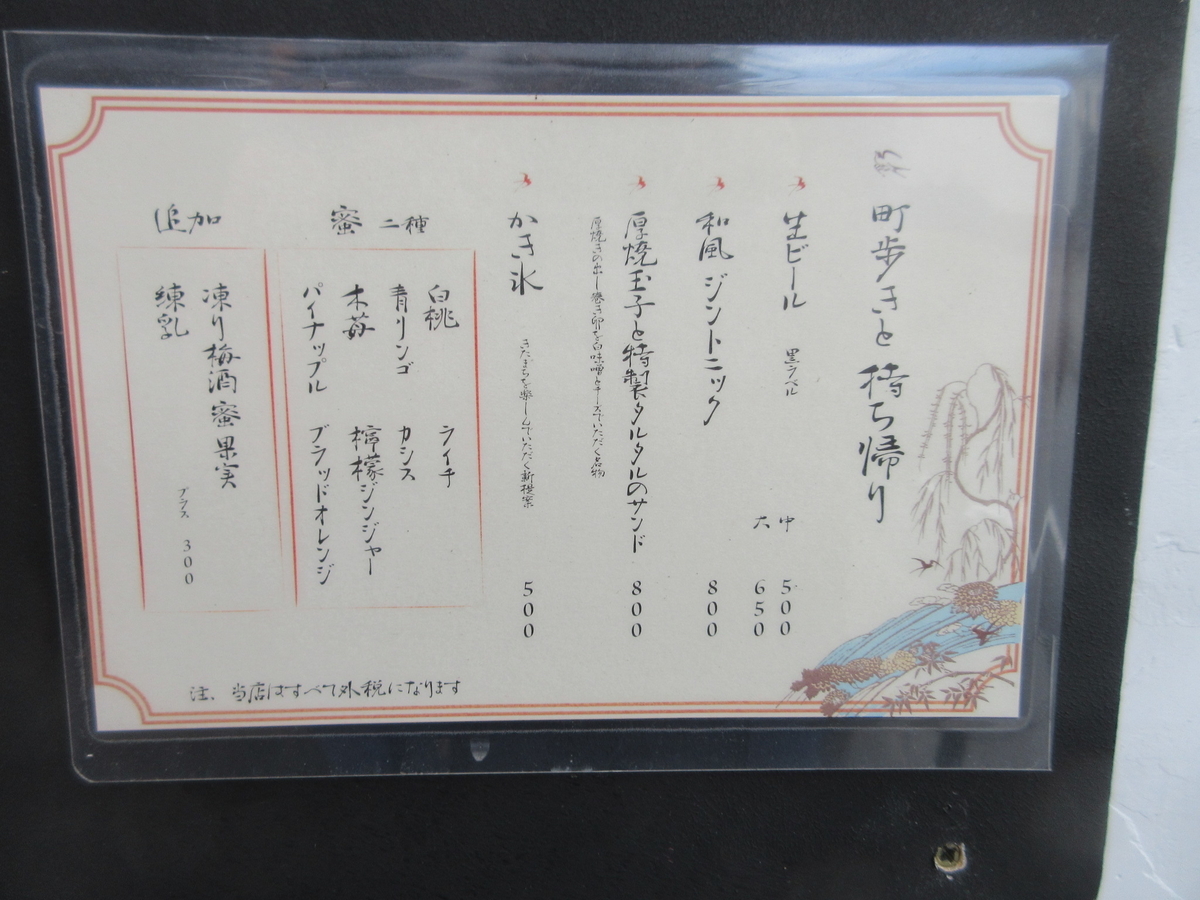 町歩きと 持ち帰り
生ビール 黒ラベル 中 500
大 650
和風ジントニック 800
厚焼玉子と特製タルタルのサンド 800
厚焼きの出し巻き卵を白味噌とチーズでいただく名物
かき氷 きたまちを楽しんでいただく新提案 500
蜜 二種
白桃 ライチ
青リンゴ カシス
木苺 檸檬ジンジャー
パイナップル ブラッドオレンジ
追加
凍り梅酒蜜果実
練乳 プラス 300
注、当店はすべて外税になります